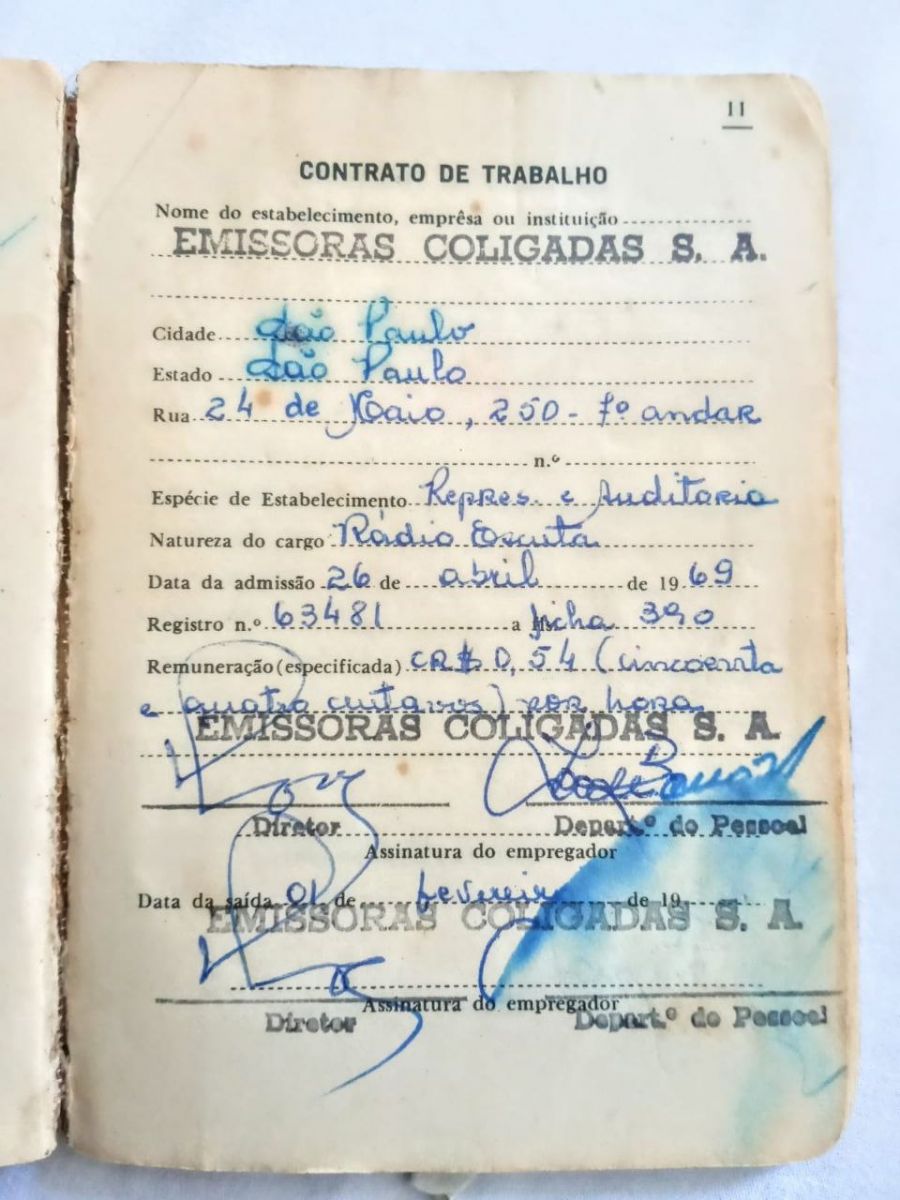 11
CONTRATO DE TRABALHO
Nome do estabelecimento, emprêsa ou instituição
EMISSORAS COLIGADAS S. A.
Cidade São Paulo
Estado São Paulo
Rua 24 de Maio, 250 - 7º andar
n.º
Espécie de Estabelecimento Repres. e Auditoria
Natureza do cargo Rádio Escuta
Data da admissão 26 de abril de 1969
Registro n.º 63481 a ficha 390
Remuneração (especificada) CR$ 0,54 (cincoenta
e quatro centavos) por hora
EMISSORAS COLIGADAS S. A.
Diretor Depart.º do Pessoal
Assinatura do empregador
Data da saída 01 de fevereiro de 19
EMISSORAS COLIGADAS S. A.
Assinatura do empregador
Diretor Depart.º do Pessoal